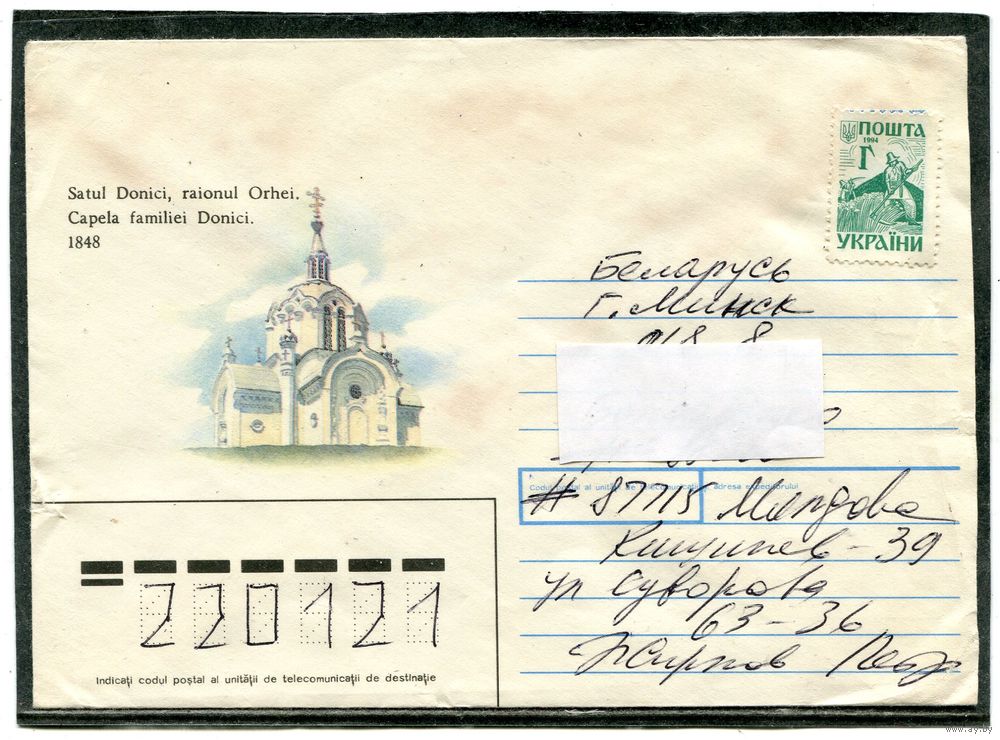 Satul Donici, raionul Orhei.
Capela familiei Donici.
1848
ПОШТА
1994
Г
УКРАЇНИ
Беларусь
г. Минск
Codul poștal al unității de telecomunicații, adresa expeditorului
# 87715 Молдова
Кишинев - 39
ул Суворова
63 - 36
220121
Indicați codul poștal al unității de telecomunicații de destinație
www.ay.by